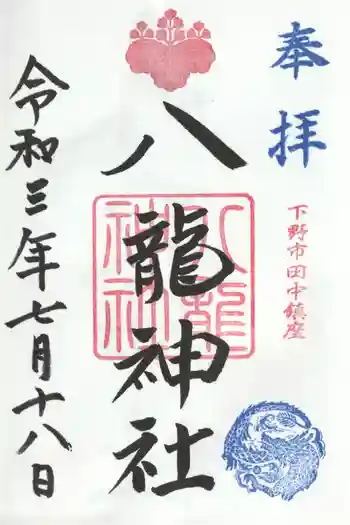 奉拝
下野市田中鎮座
八龍神社
八龍神社
令和三年七月十八日